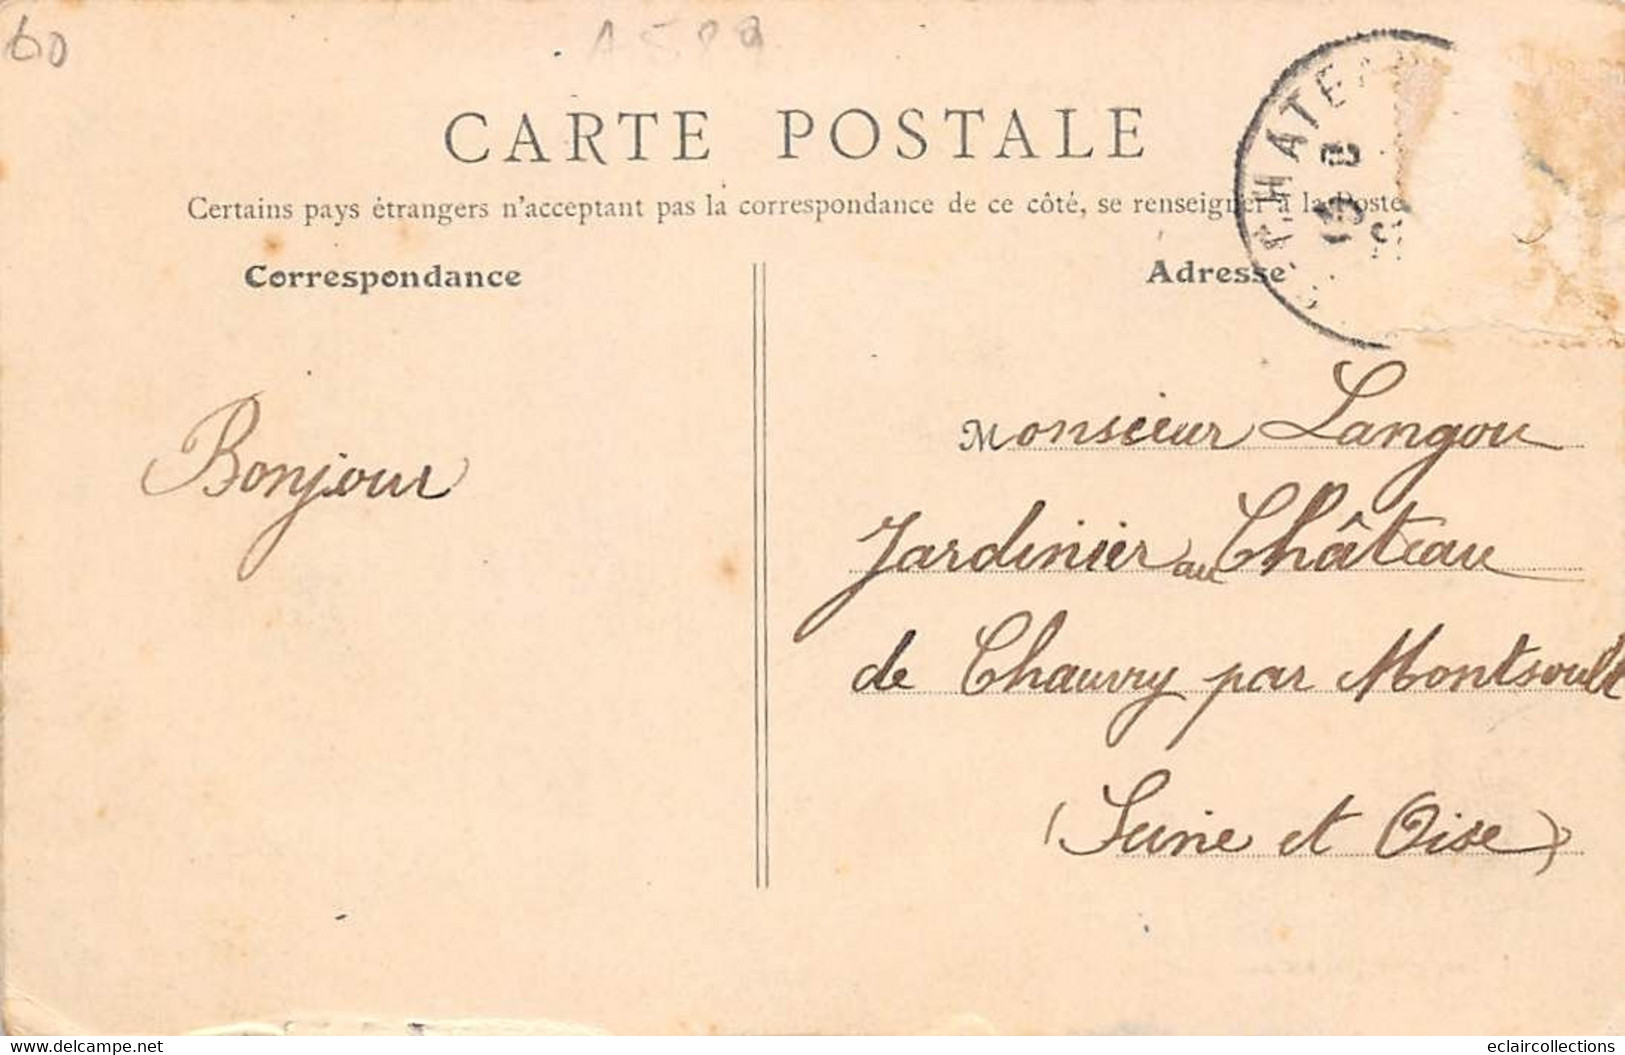 60
CARTE POSTALE
Certains pays étrangers n'acceptant pas la correspondance de ce côté, se renseigner à la Poste
Correspondance
Adresse
Bonjour
Monsieur Langou
Jardinier au Château
de Chauvry par Montsoult
(Seine et Oise)
www.delcampe.net
eclaircollections